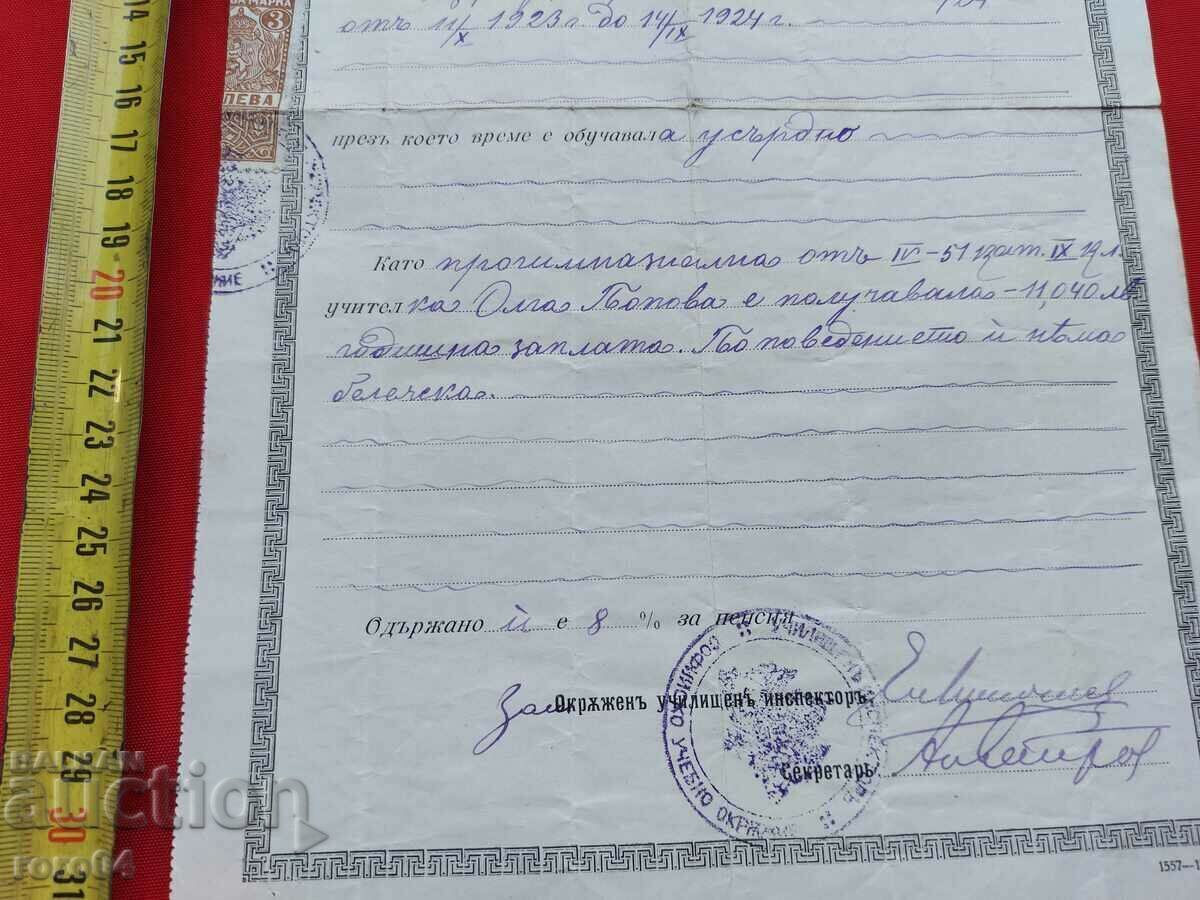 МАРКА
3
ЛЕВА
отъ 11/X 1923 г до 14/IX 1924 г.
презъ което време е обучавала усърдно
Като прогимназиална отъ IV-51 кат. IX
учителка Олга Попова е получавала - 11,040 лв
годишна заплата. По поведението ѝ нѣма
белечска.
Одържано ѝ е 8 % за пенсия
Зам. Окрѫженъ училищенъ инспекторъ
Секретарь
СОФИЙСКО УЧЕБНО ОКРѪЖИЕ
УЧИЛИЩЕНЪ ИНСПЕКТОРЪ
1557—1
14
15
16
17
18
19
20
21
22
23
24
25
26
27
28
29
30
31
BALKAN
auction
roro04